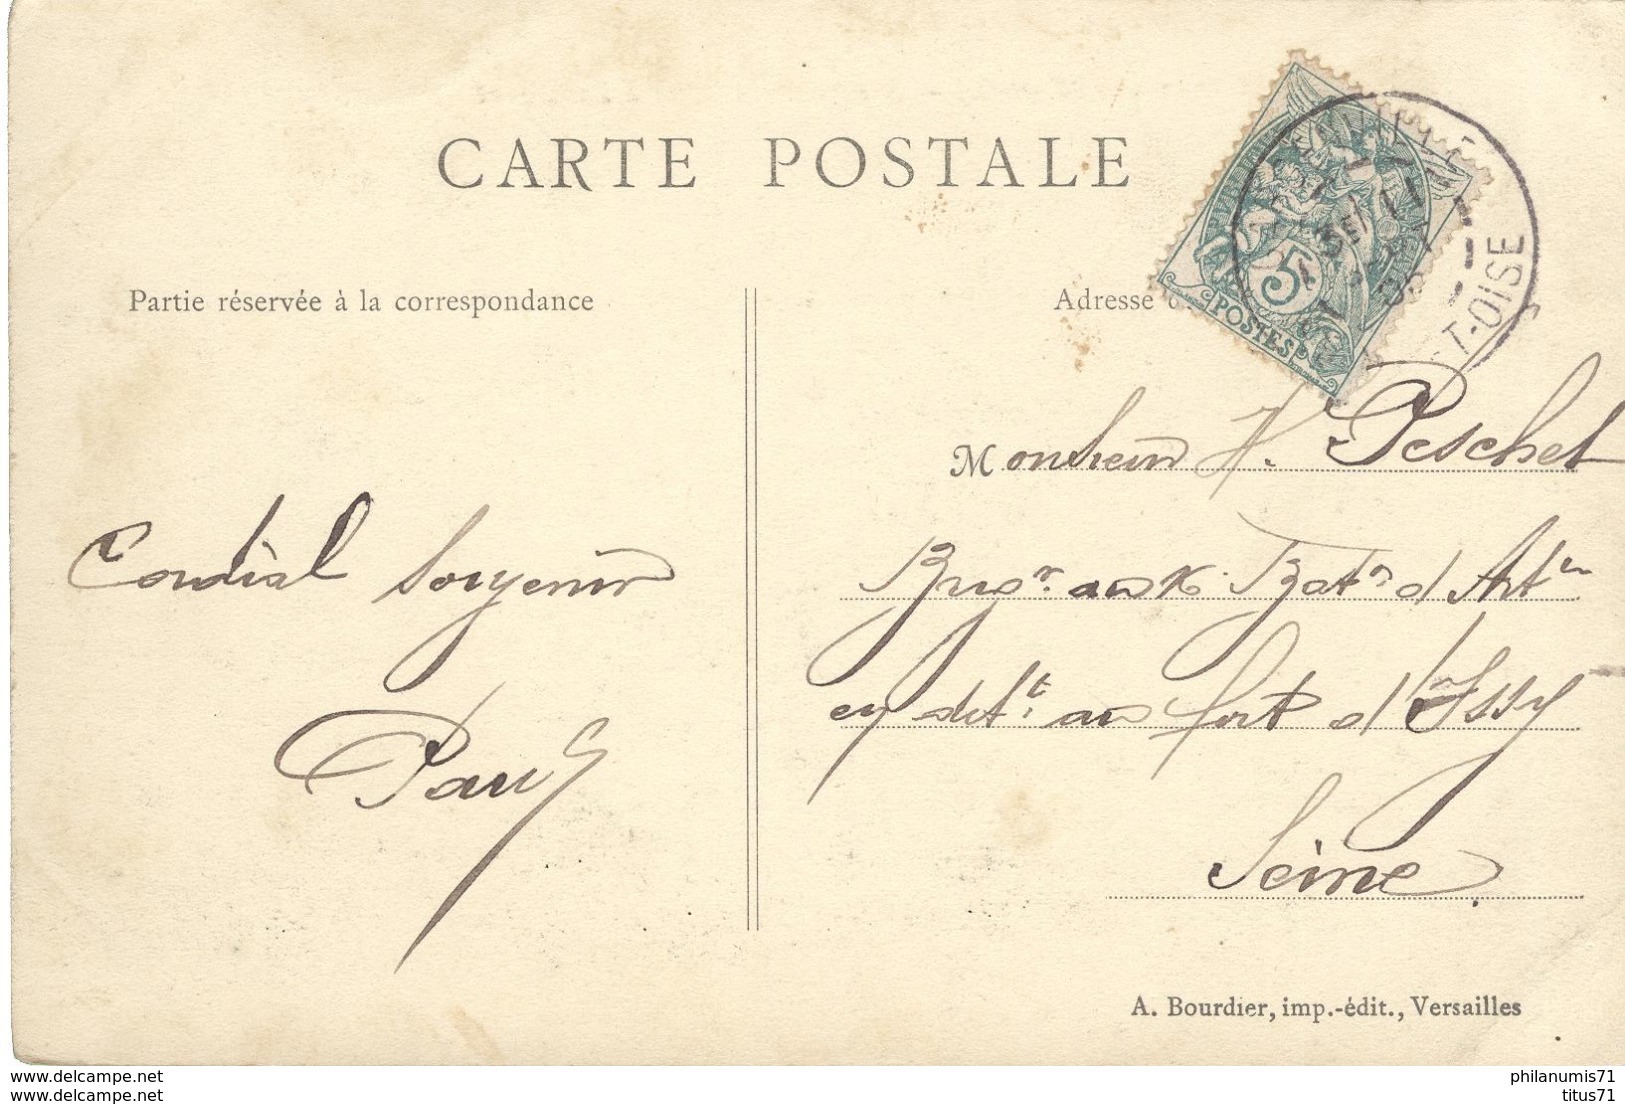 CARTE POSTALE
Partie réservée à la correspondance
Adresse
5
POSTES
OISE
Monsieur H. Peschet
Cordial souvenir
Brigr au Batn d'Artie
Paul
en dett au fort d'Issy
Seine
A. Bourdier, imp.-édit., Versailles
www.delcampe.net
www.delcampe.net
philanumis71
titus71